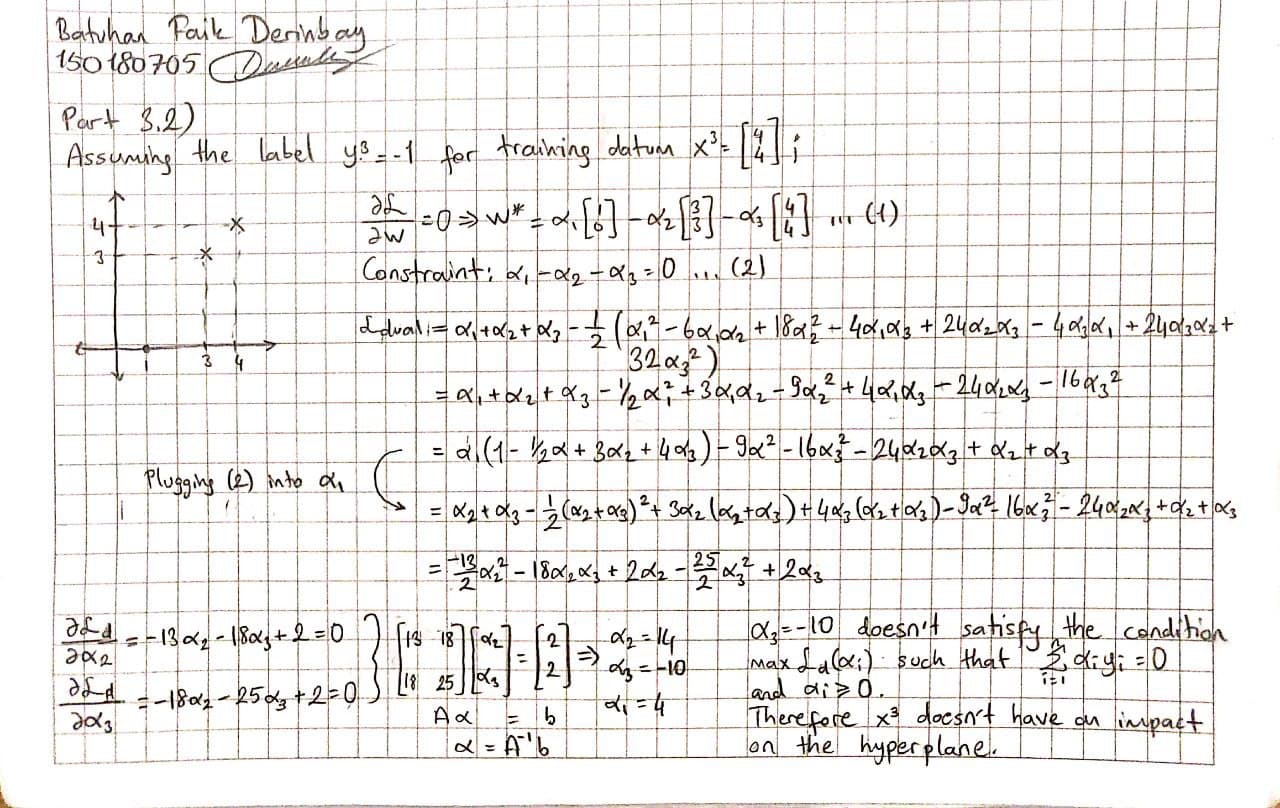 Batuhan Faik Derinbay
150180705
Part 3.2)
Assuming the label y³ = -1 for training datum x³ = [4 4] ;
4
3
1 3 4
∂ℒ/∂w = 0 ⇒ w* = α₁[1 0] - α₂[3 3] - α₃[4 4] ... (1)
Constraint: α₁ - α₂ - α₃ = 0 ... (2)
ℒdual := α₁ + α₂ + α₃ - 1/2 (α₁² - 6α₁α₂ + 18α₂² - 4α₁α₃ + 24α₂α₃ - 4α₃α₁ + 24α₃α₂ +
32α₃²)
= α₁ + α₂ + α₃ - 1/2 α₁² + 3α₁α₂ - 9α₂² + 4α₁α₃ - 24α₂α₃ - 16α₃²
= α₁(1 - 1/2α + 3α₂ + 4α₃) - 9α² - 16α₃² - 24α₂α₃ + α₂ + α₃
Plugging (2) into α₁
= α₂ + α₃ - 1/2(α₂+α₃)² + 3α₂(α₂+α₃) + 4α₃(α₂+α₃) - 9α² - 16α₃² - 24α₂α₃ + α₂ + α₃
= -13/2 α₂² - 18α₂α₃ + 2α₂ - 25/2 α₃² + 2α₃
∂ℒd/∂α₂ = -13α₂ - 18α₃ + 2 = 0
∂ℒd/∂α₃ = -18α₂ - 25α₃ + 2 = 0
} [13 18 18 25] [α₂ α₃] = [2 2] ⇒
Aα = b
α = A⁻¹b
α₂ = 14
α₃ = -10
α₁ = 4
α₃ = -10 doesn't satisfy the condition
max ℒd(αi) such that Σ(i=1, n) αiyi = 0
and αi ≥ 0.
Therefore x³ doesn't have an impact
on the hyperplane.